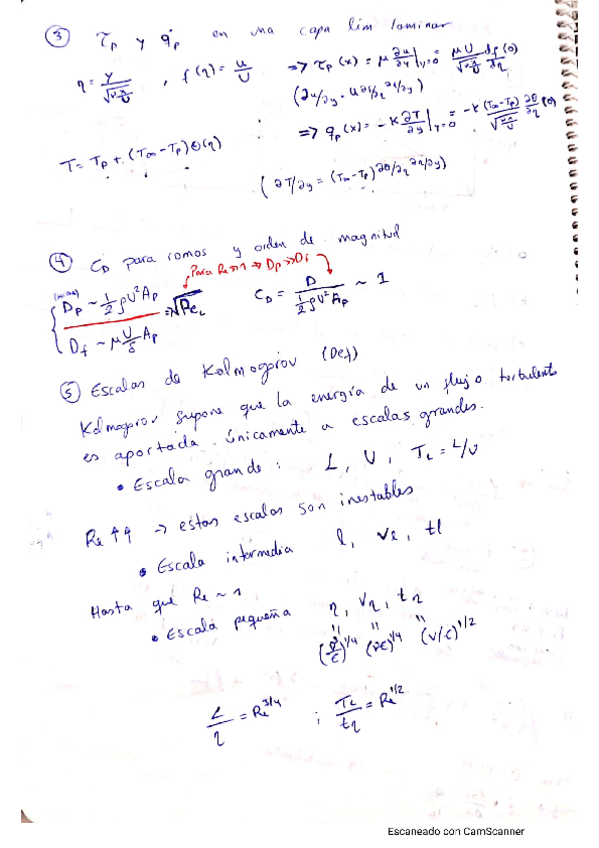 ③ τp y q̇p en una capa lim laminar
η = y/√(νx/U) , f(η) = u/U ⇒ τp(x) = μ ∂u/∂y|y=0 = μU/√(νx/U) df/dη(0)
(∂u/∂y = u ∂f/∂η ∂η/∂y)
⇒ qp(x) = -k ∂T/∂y|y=0 = -k (T∞-Tp)/√(νx/U) ∂θ/∂η(0)
T = Tp + (T∞ - Tp)θ(η)
(∂T/∂y = (T∞-Tp) ∂θ/∂η ∂η/∂y)
④ CD para romos y orden de magnitud
Para Re>>1 → Dp>>Df
Dp ~ 1/2 ρU²Ap
= √ReL
CD = D / (1/2 ρU²Ap) ~ 1
Df ~ μ U/δ Ap
⑤ Escalas de Kolmogorov (Def)
Kolmogorov supone que la energía de un flujo turbulento
es aportada únicamente a escalas grandes.
• Escala grande: L, U, TL = L/U
Re ↑↑ → estas escalas son inestables
• Escala intermedia l, vl, tl
Hasta que Re ~ 1
• Escala pequeña η, vη, tη
(ν³/ε)^1/4 (νε)^1/4 (ν/ε)^1/2
L/η = Re^3/4 ; TL/tη = Re^1/2
Escaneado con CamScanner